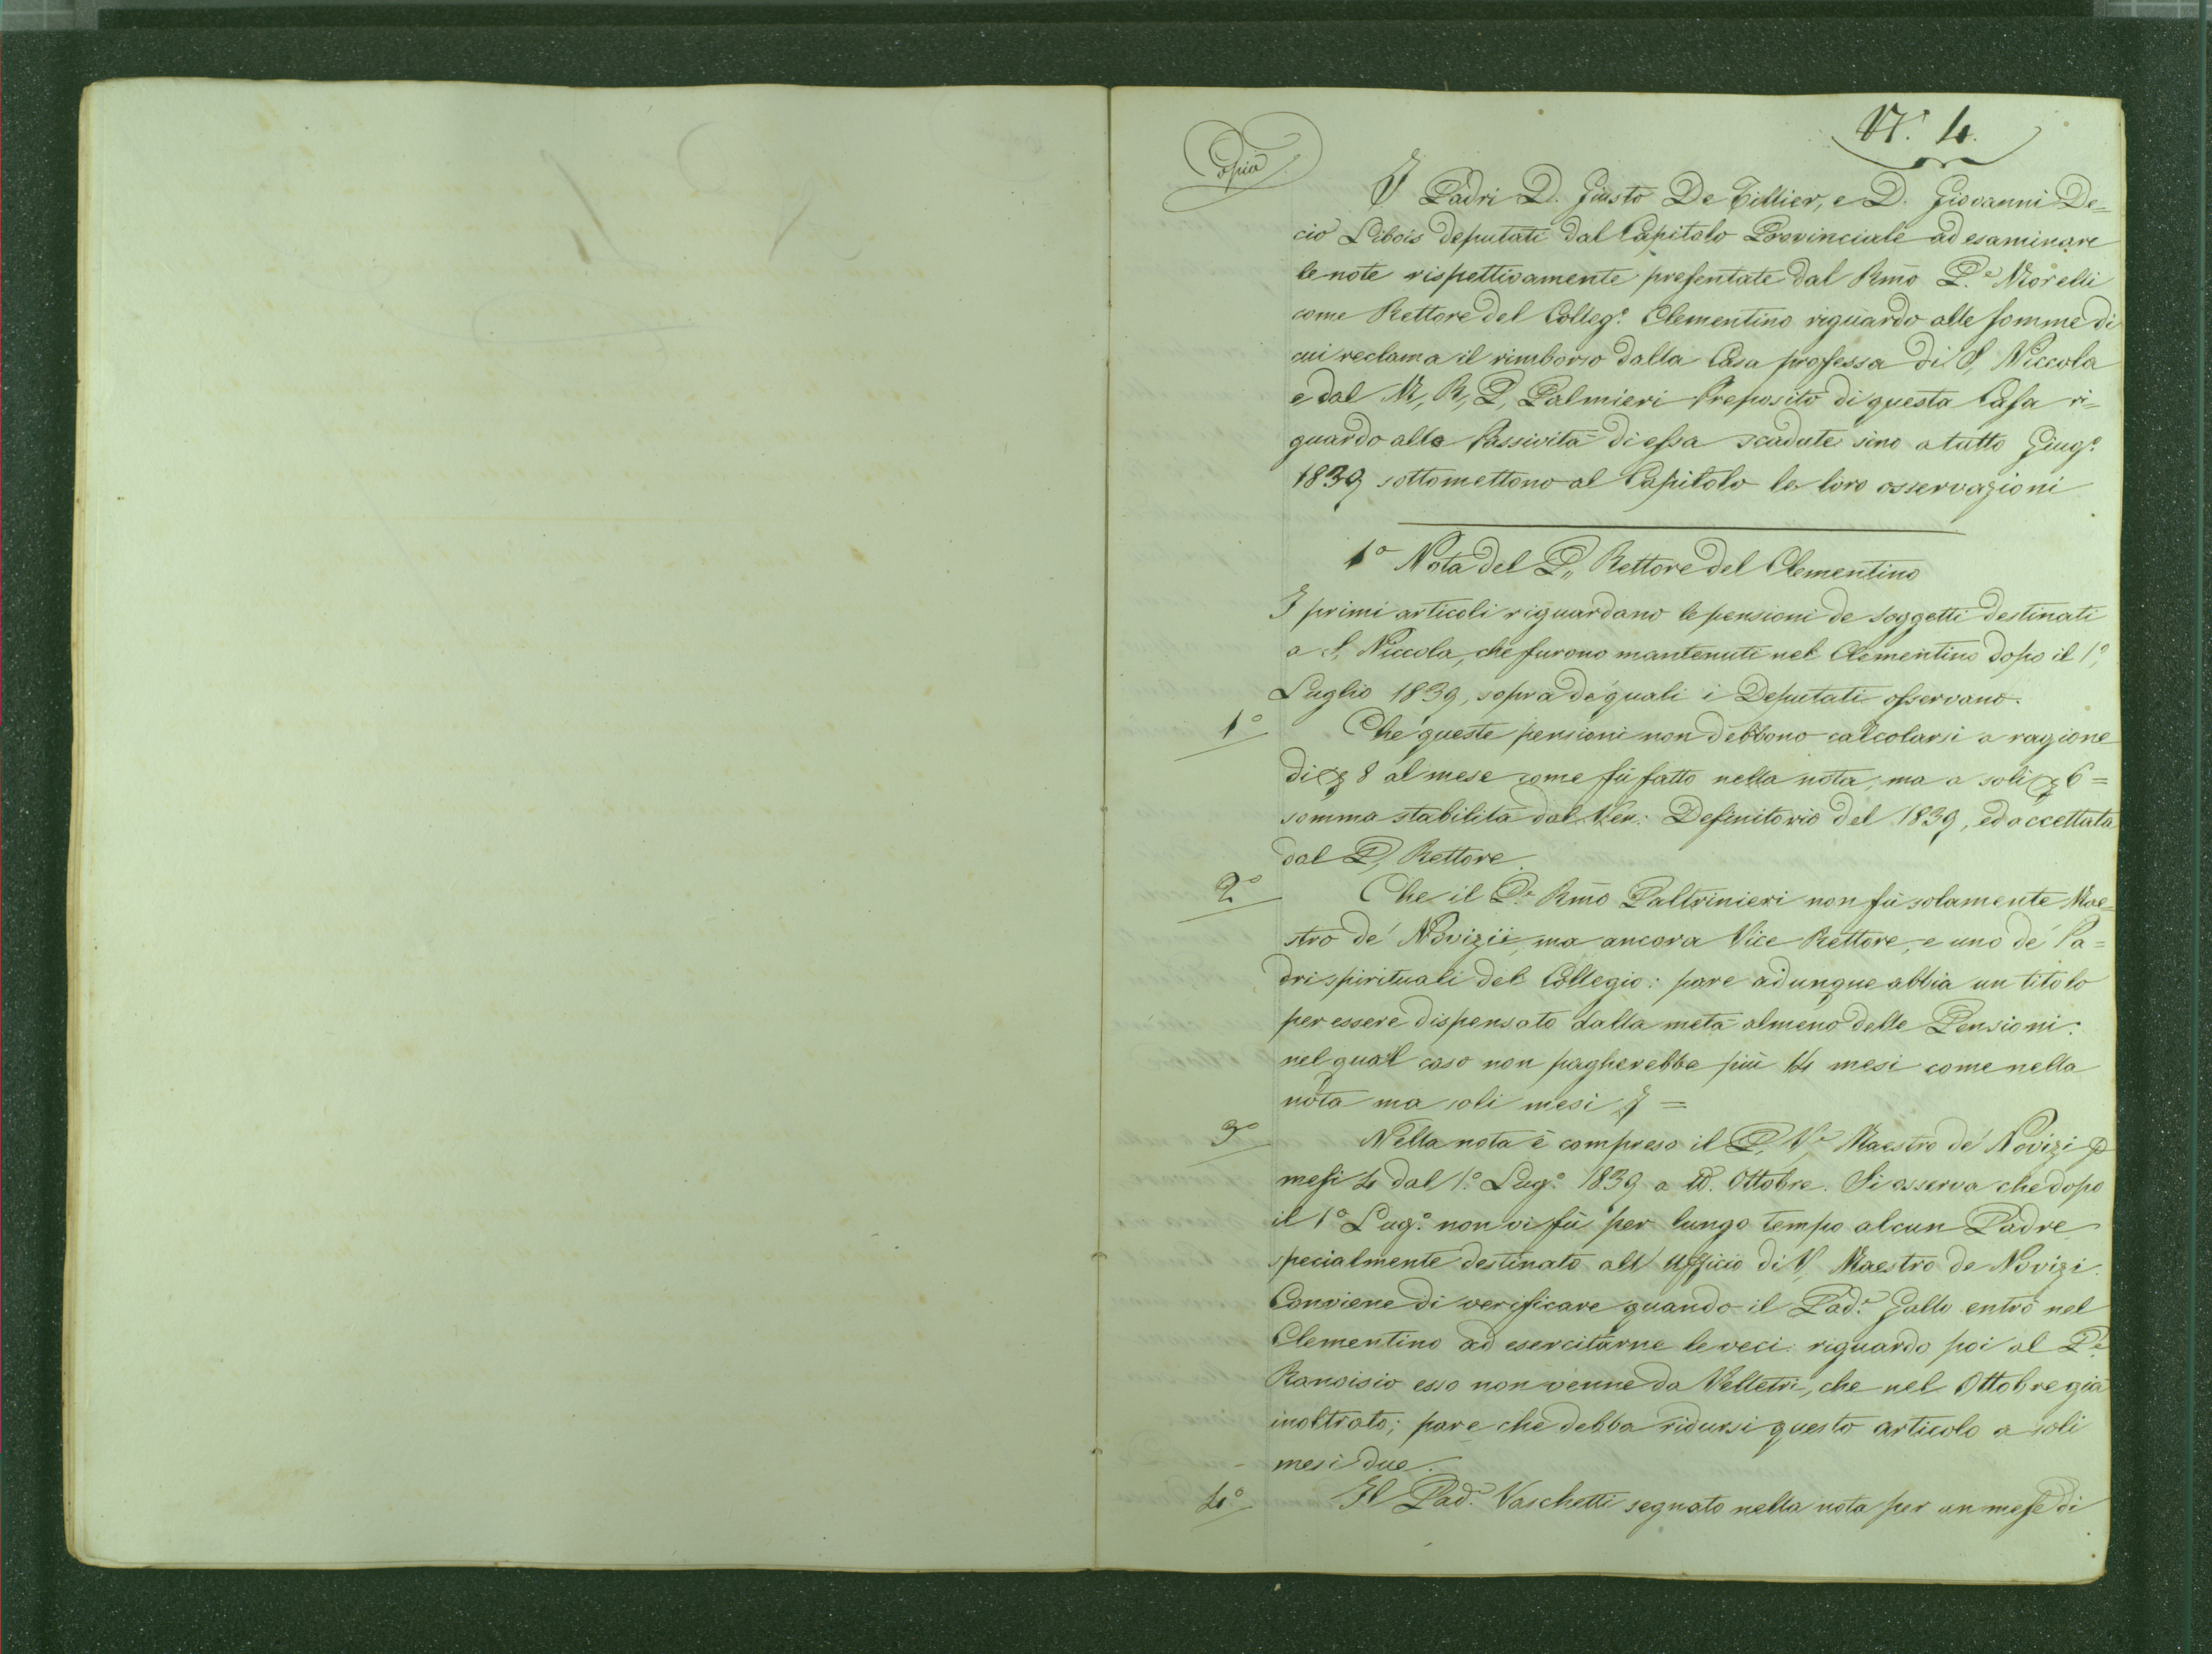 N.° 4.
Copia
I Padri D. Giusto De Tillier, e D. Giovanni De=
cio Libois deputati dal Capitolo Provinciale ad esaminare
le note rispettivamente presentate dal Rm̄o P.e Morelli
come Rettore del Colleg.° Clementino riguardo alle somme di
cui reclama il rimborso dalla Casa professa di S, Niccola
e dal M, R, P, Palmieri Preposito di questa Casa ri=
guardo alle Passività di essa scadute sino a tutto Giug.°
1839 sottomettono al Capitolo le loro osservazioni
1° Nota del P,, Rettore del Clementino
I primi articoli riguardano le pensioni de soggetti destinati
a S, Niccola, che furono mantenuti nel Clementino dopo il 1°,
Luglio 1839, sopra de' quali i Deputati osservano.
1° Che queste pensioni non debbono calcolarsi a ragione
di 8 al mese come fù fatto nella nota, ma a soli 6=
somma stabilita dal Ven: Definitorio del 1839, ed accettata
dal P, Rettore.
2° Che il P.e Rm̄o Paltrinieri non fù solamente Mae=
stro de' Novizii, ma ancora Vice Rettore, e uno de' Pa=
dri spirituali del Collegio: pare adunque abbia un titolo
per essere dispensato dalla metà almeno delle Pensioni:
nel qual caso non pagherebbe più 14 mesi come nella
nota ma soli mesi 7 =
3° Nella nota è compreso il P, V.e Maestro de' Novizi p
mesi 4 dal 1.° Lug.° 1839 a tt. Ottobre. Si osserva che dopo
il 1° Lug.° non vi fù per lungo tempo alcun Padre
specialmente destinato all' Ufficio di V, Maestro de Novizi.
Conviene di verificare quando il Pad.e Gallo entrò nel
Clementino ad esercitarne le veci: riguardo poi al P.e
esso non venne da Velletri, che nel Ottobre già
inoltrato; pare che debba ridursi questo articolo a soli
mesi due.
4° Il Pad.e Vaschetti segnato nella nota per un mese di